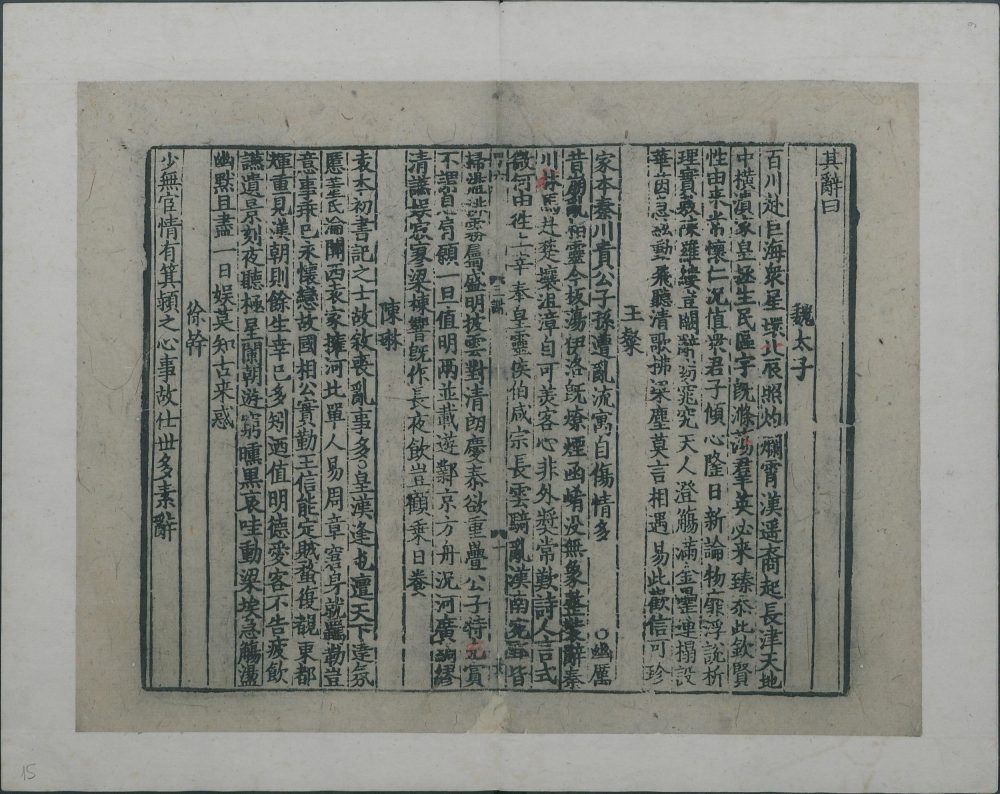 其辭曰
魏太子
百川赴巨海衆星環北辰照灼爛霄漢遥裔起長津天地
中橫潰家皇拯生民區宇旣滌蕩羣英必來臻忝此欽賢
性由來常懷仁况值衆君子傾心隆日新論物靡浮說析
理實敷陳羅縷豈闕辭窈窕究天人澄觴滿金罍連榻設
華茵急絃動飛聽清歌拂梁塵莫言相遇易此歡信可珍
王粲
家本秦川貴公子孫遭亂流寓自傷情多 ○幽厲
昔崩亂桓靈今板蕩伊洛旣燎煙函崤没無象整裝辭秦
川秣馬赴楚壤沮漳自可美客心非外奬常歎詩人言式
微何由往上宰奉皇靈侯伯咸宗長雲騎亂漢南宛郢皆
掃盪排霧屬盛明披雲對清朗慶泰欲重疊公子特先賞
不謂息肩願一旦值明兩並載遊鄴京方舟況河廣綢繆
清讌娱寂寥梁棟響旣作長夜飲豈顧乗日養
陳琳
袁本初書記之士故叙喪亂事多○皇漢逢屯邅天下遭氛
慝董氏淪關西袁家擁河北單人易周章窘身就羈勒豈
意事乖已永懷戀故國相公實勤王信能定賊蝥復覩東都
輝重見漢朝則餘生幸已多矧迺值明德愛客不告疲飲
讌遺景刻夜聽極星闌朝遊窮曛黑哀哇動梁埃急觴盪
幽默且盡一日娱莫知古来惑
徐幹
少無宦情有箕潁之心事故仕世多素辭
15